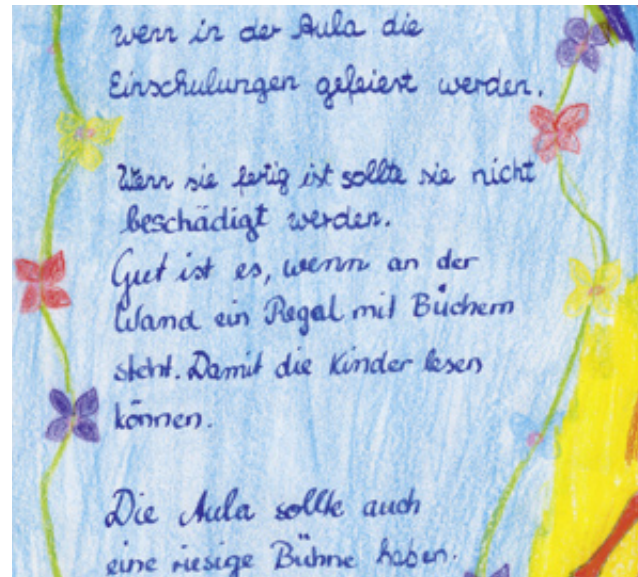 wenn in der Aula die
Einschulungen gefeiert werden.
Wenn sie fertig ist sollte sie nicht
beschädigt werden.
Gut ist es, wenn an der
Wand ein Regal mit Büchern
steht. Damit die Kinder lesen
können.
Die Aula sollte auch
eine riesige Bühne haben.